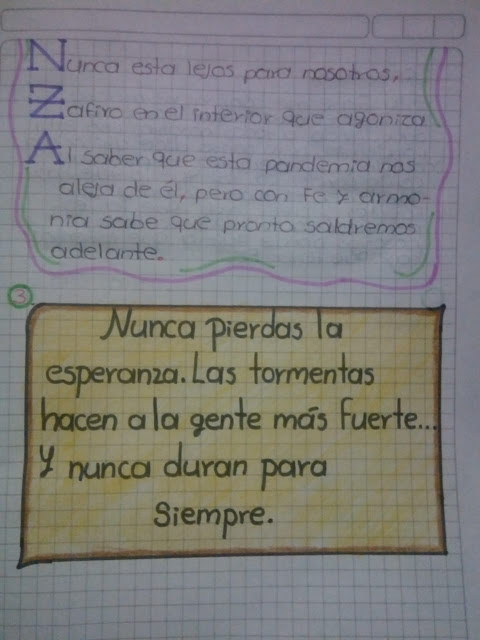 Nunca esta lejos para nosotros,
Zafiro en el interior que agoniza
Al saber que esta pandemia nos
aleja de él, pero con Fe y armo-
nia sabe que pronto saldremos
adelante.
3
Nunca pierdas la
esperanza. Las tormentas
hacen a la gente más fuerte...
y nunca duran para
siempre.